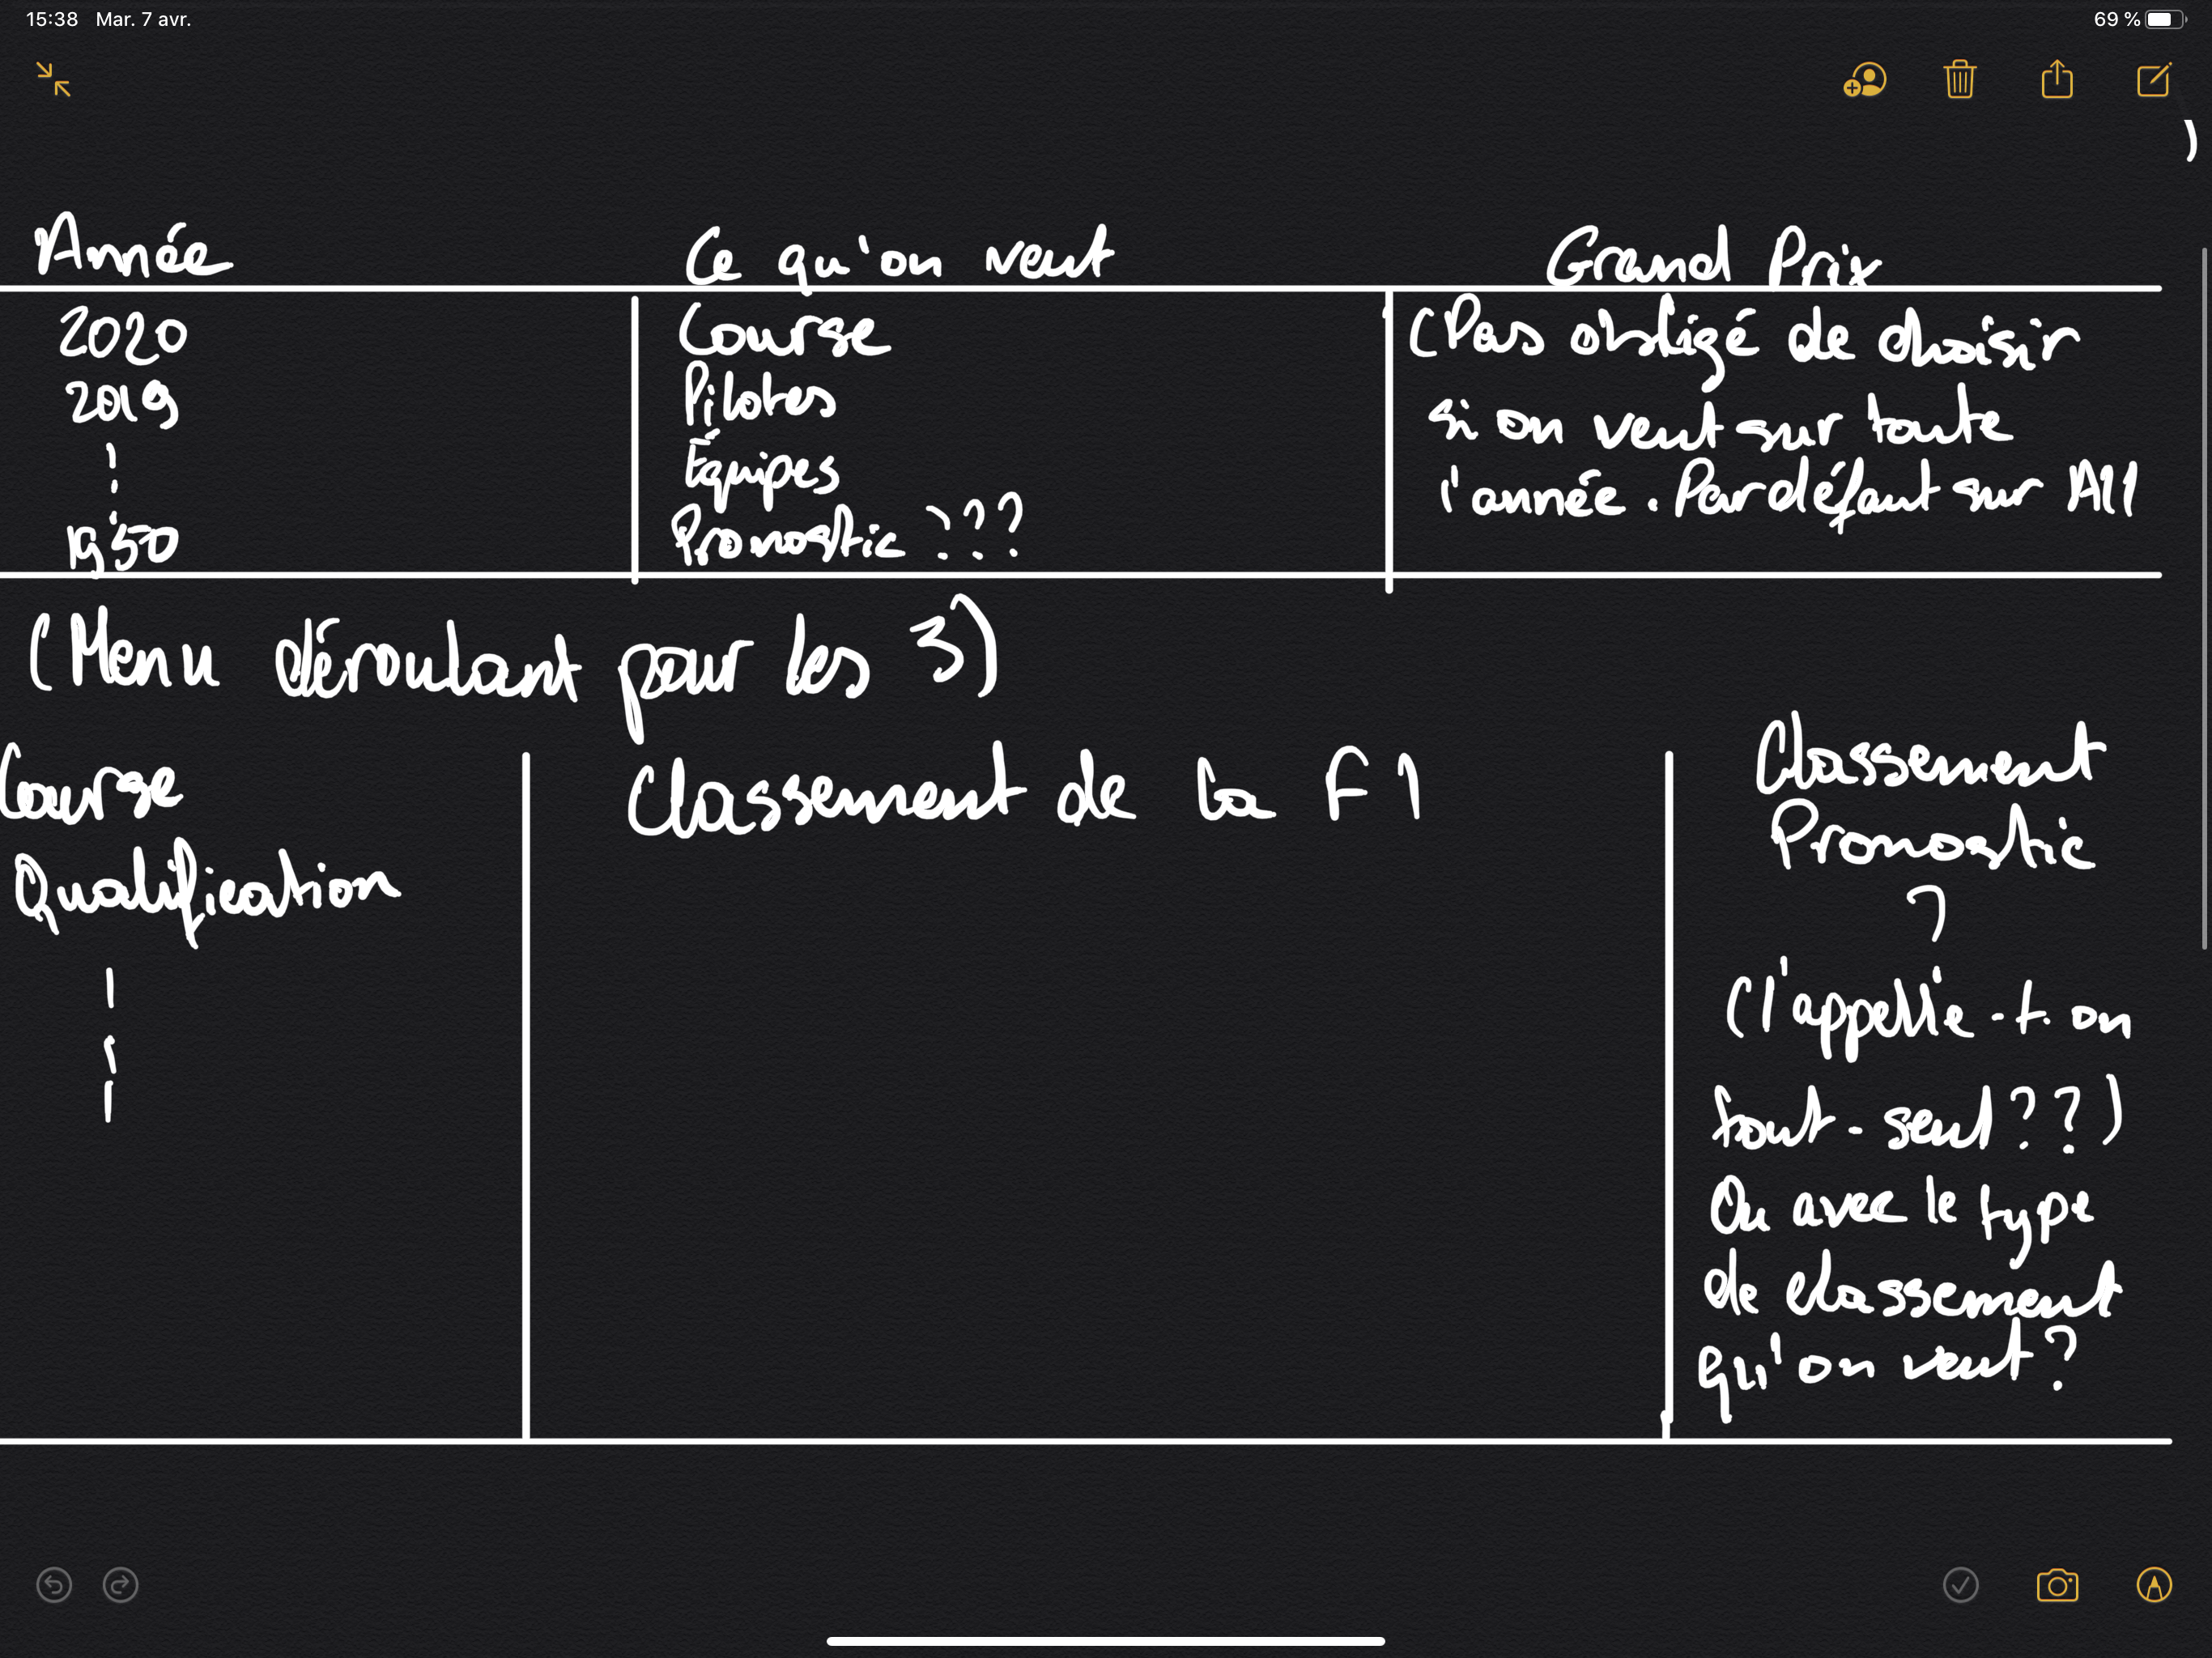 15:38 Mar. 7 avr. 69 %
Année Ce qu'on veut Grand Prix
2020
2019
1950
Course
Pilotes
Équipes
Pronostic ???
(Pas obligé de choisir
si on veut sur toute
l'année. Par défaut sur All
(Menu déroulant pour les 3)
Course
Qualification
Classement de la F1
Classement
Pronostic
?
(l'appelle-t-on
tout-seul??)
Ou avec le type
de classement
qu'on veut?